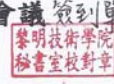 會議簽到單
黎明技術學院
秘書室校對章